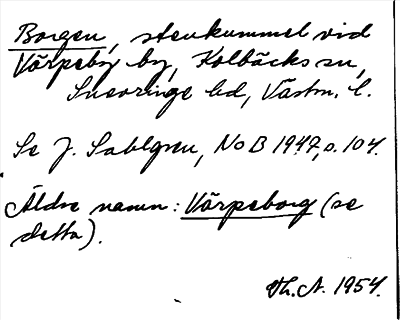 Borgen, stenkummel vid
Värpeby by, Kolbäcks sn,
Snevringe hd, Västm. l.
Se J. Sahlgren, NoB 1947, s. 104.
Äldre namn: Värpeborg (se
detta).
Th. A. 1954.